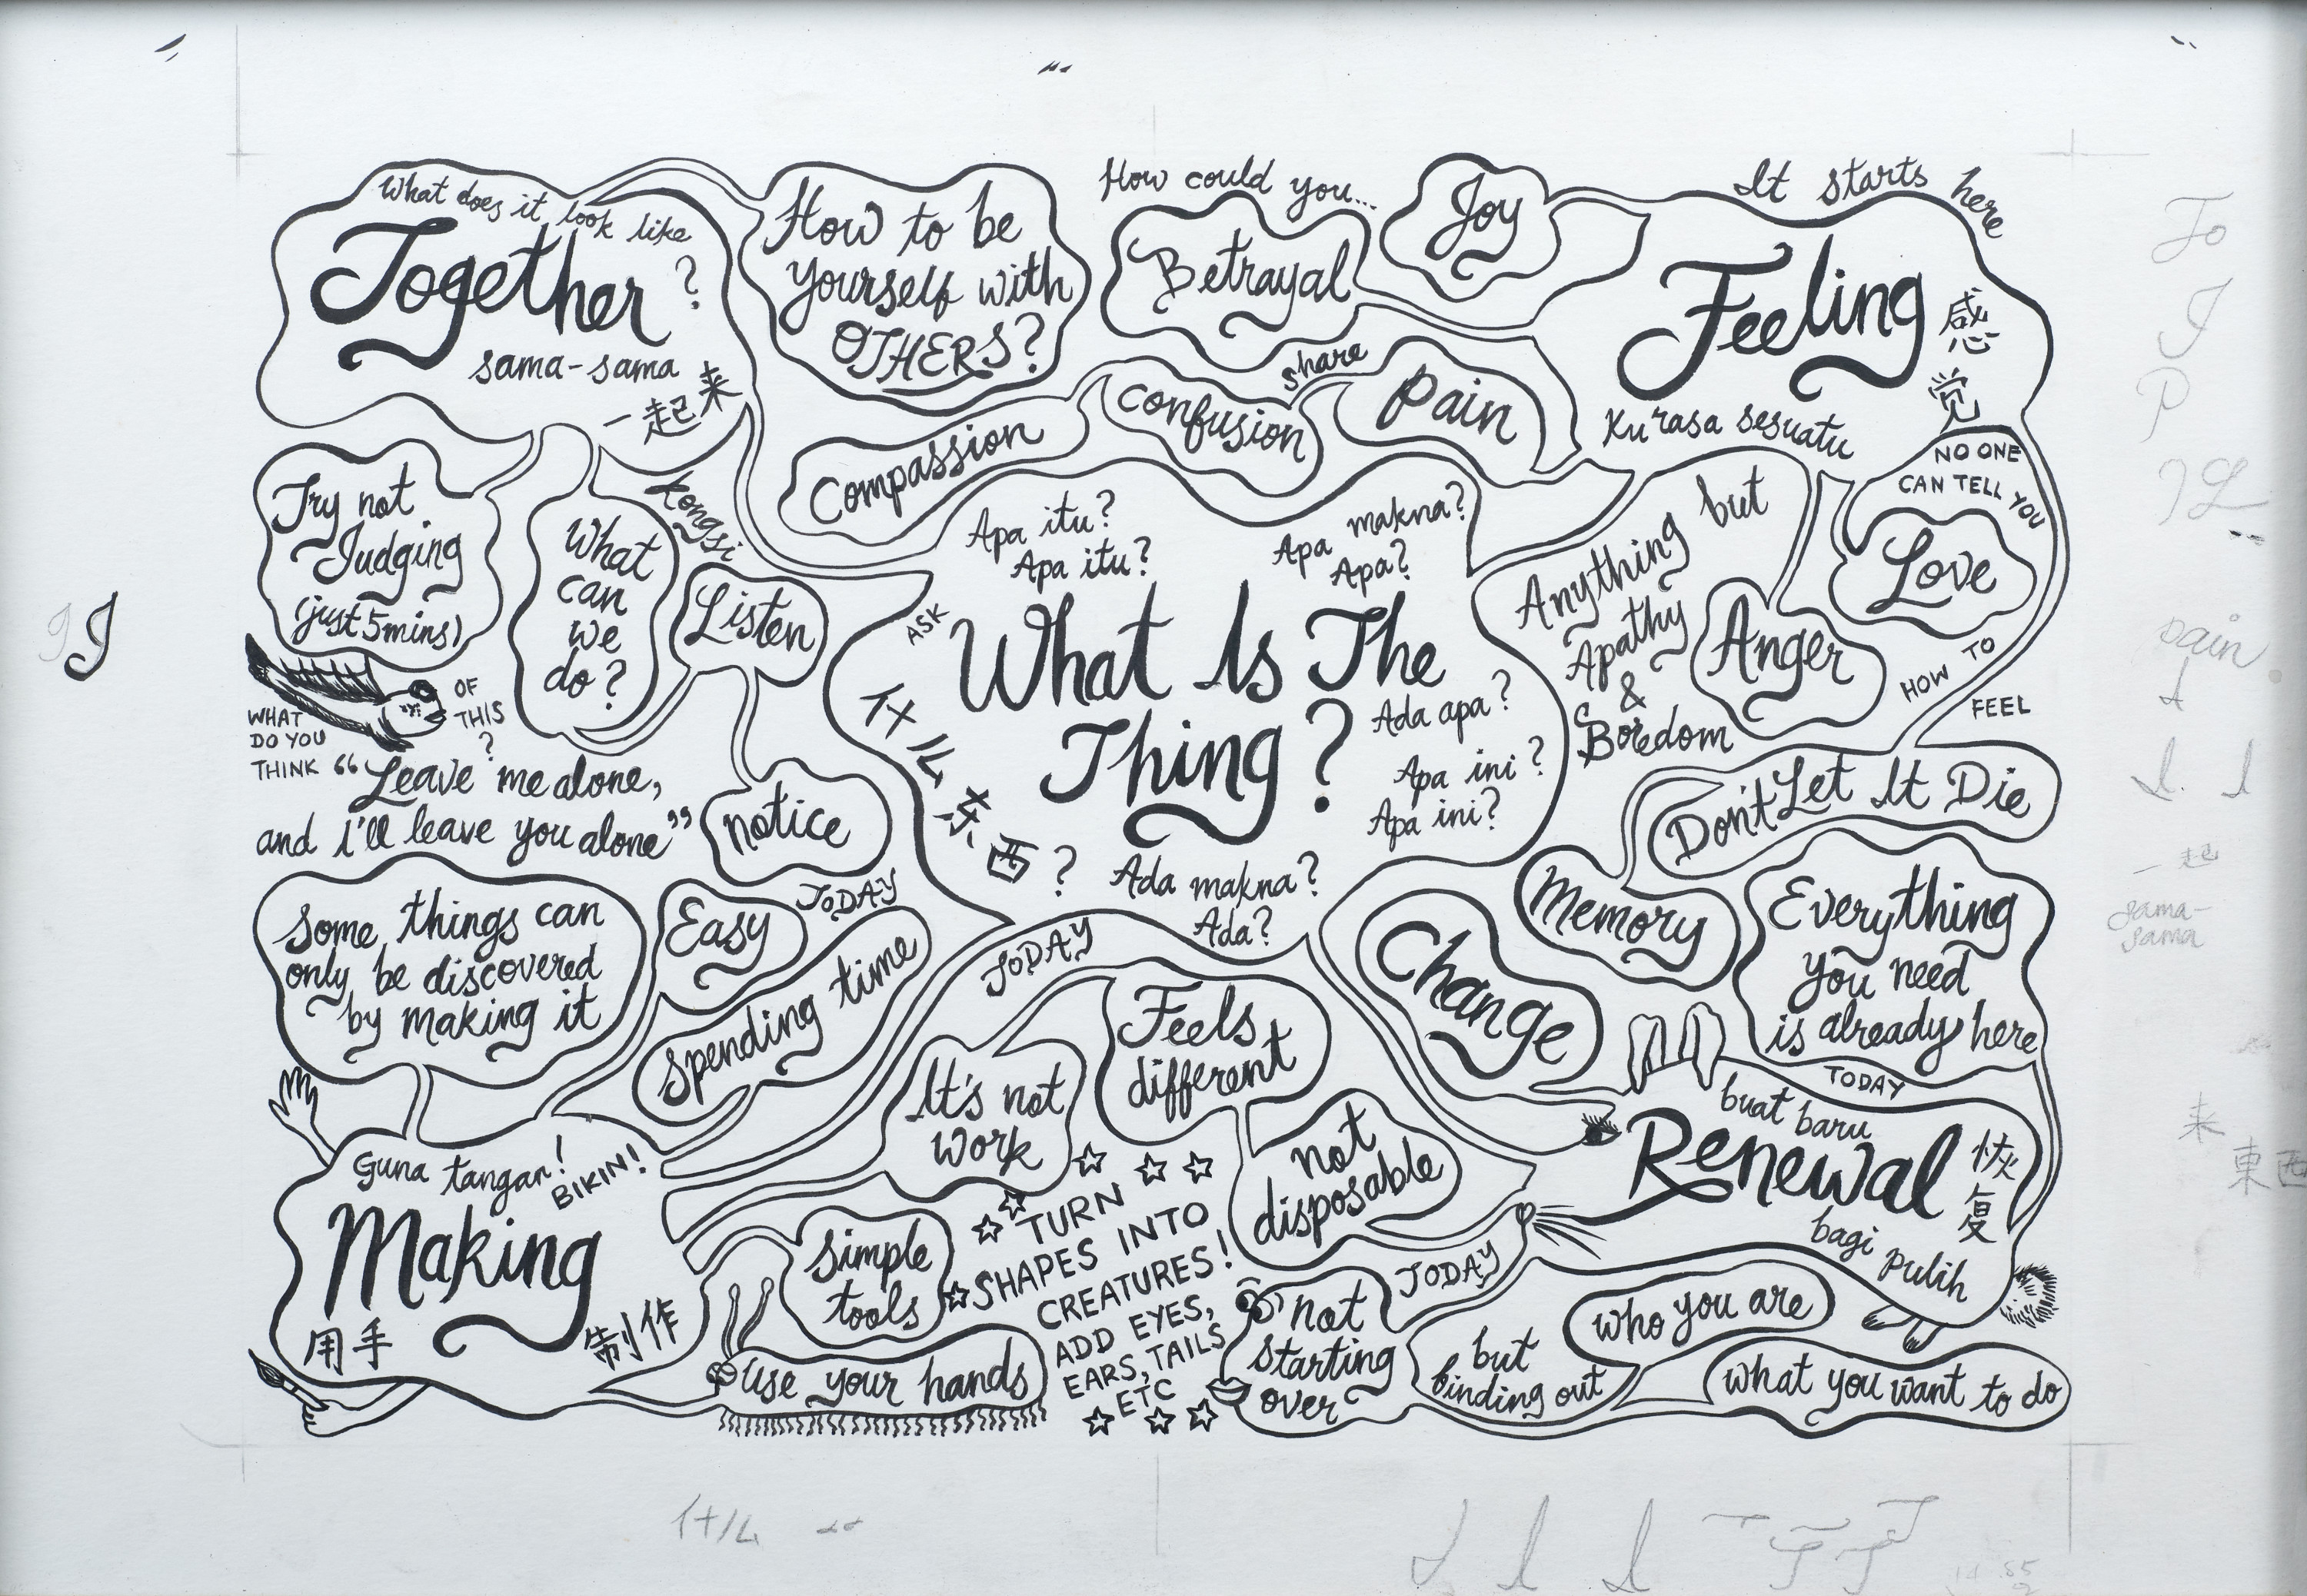 What does it look like
Together?
sama-sama
一起来
How to be
yourself with
OTHERS?
How could you...
Betrayal
Joy
It starts here
Feeling
感
觉
Ku rasa sesuatu
Compassion
confusion
share
Pain
NO ONE
CAN TELL YOU
Love
HOW TO
FEEL
Try not
Judging
(just 5mins)
What
can
we
do?
kongsi
Listen
notice
WHAT
DO YOU
THINK
OF
THIS
?
"Leave me alone,
and I'll leave you alone"
Apa itu?
Apa itu?
Apa makna?
Apa?
ASK
What Is The
Thing?
Ada apa?
Apa ini?
Apa ini?
Ada makna?
Ada?
什么东西?
Anything but
Apathy
&
Boredom
Anger
Don't Let It Die
Memory
Change
Everything
you need
is already here
TODAY
buat baru
Renewal
恢
复
bagi pulih
Some things can
only be discovered
by making it
Easy
TODAY
Spending time
TODAY
It's not
work
Feels
different
not
disposable
TODAY
Guna tangan!
BIKIN!
Making
用手
制作
Simple
tools
use your hands
TURN
SHAPES INTO
CREATURES!
ADD EYES,
EARS, TAILS
ETC
not
starting
over
but
finding out
who you are
what you want to do
To
J
P
pain
I
一起
sama-
sama
来
東西